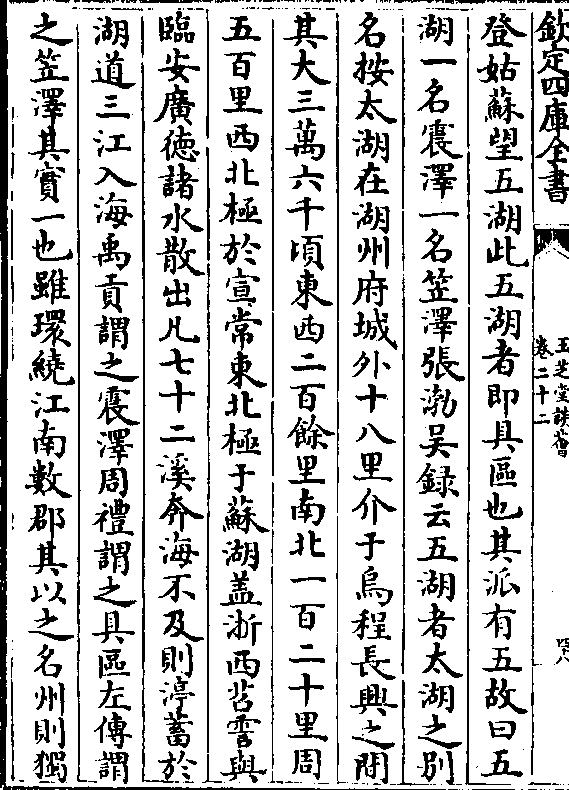 欽定四庫全書
玉芝堂談薈
卷二十二
登姑蘇望五湖此五湖者即具區也其派有五故曰五
湖一名震澤一名笠澤張渤吳録云五湖者太湖之别
名按太湖在湖州府城外十八里介于烏程長興之間
其大三萬六千頃東西二百餘里南北一百二十里周
五百里西北極於宣常東北極于蘇湖盖浙西苕霅與
臨安廣徳諸水散出凡七十二溪奔海不及則渟蓄於
湖道三江入海禹貢謂之震澤周禮謂之具區左傳謂
之笠澤其實一也雖環繞江南數郡其以之名州則獨